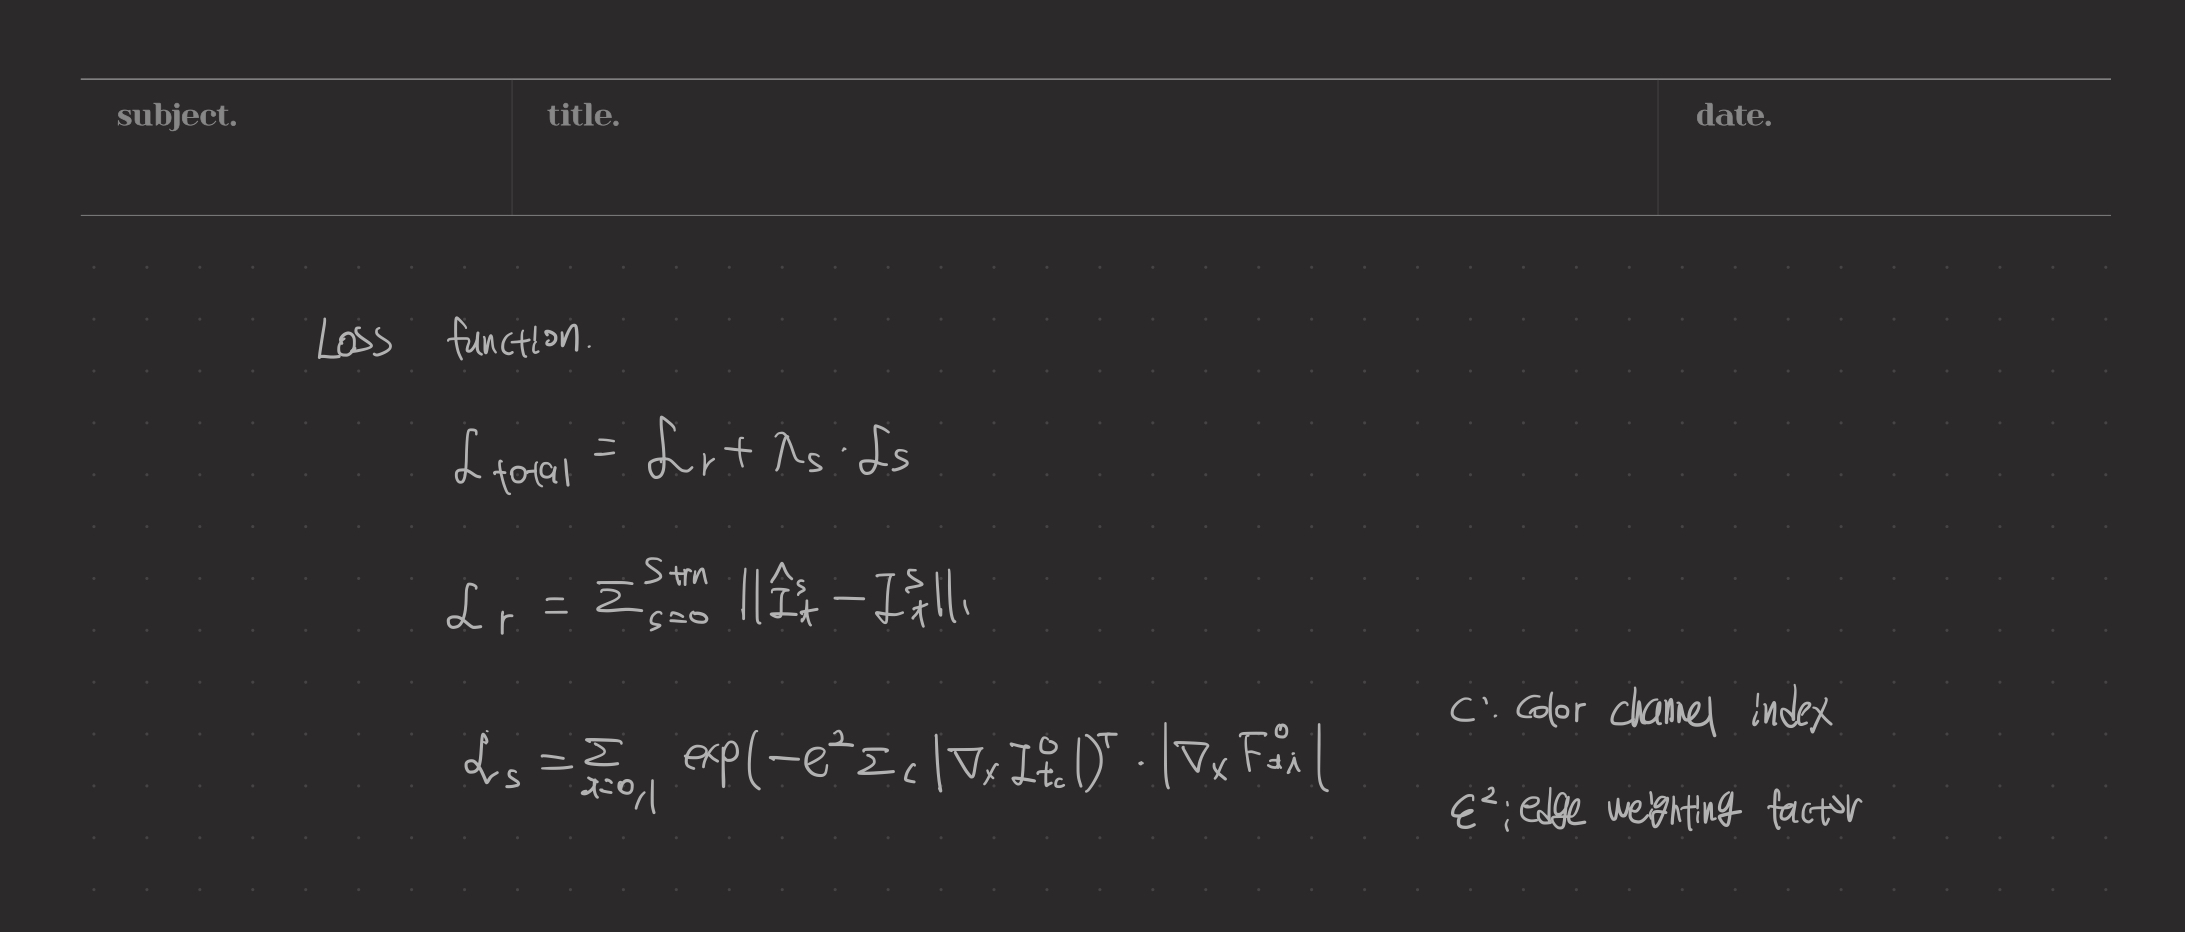 subject. title. date.
Loss function.
ℒ_total = ℒ_r + λ_s · ℒ_s
ℒ_r = Σ_{s=0}^{S_trn} ||Î_t^s − I_t^s||_1
ℒ_s = Σ_{i=0,1} exp(−e² Σ_c |∇_x I_{tc}^0|)^T · |∇_x F_{ti}^0|
c: color channel index
ε²: edge weighting factor